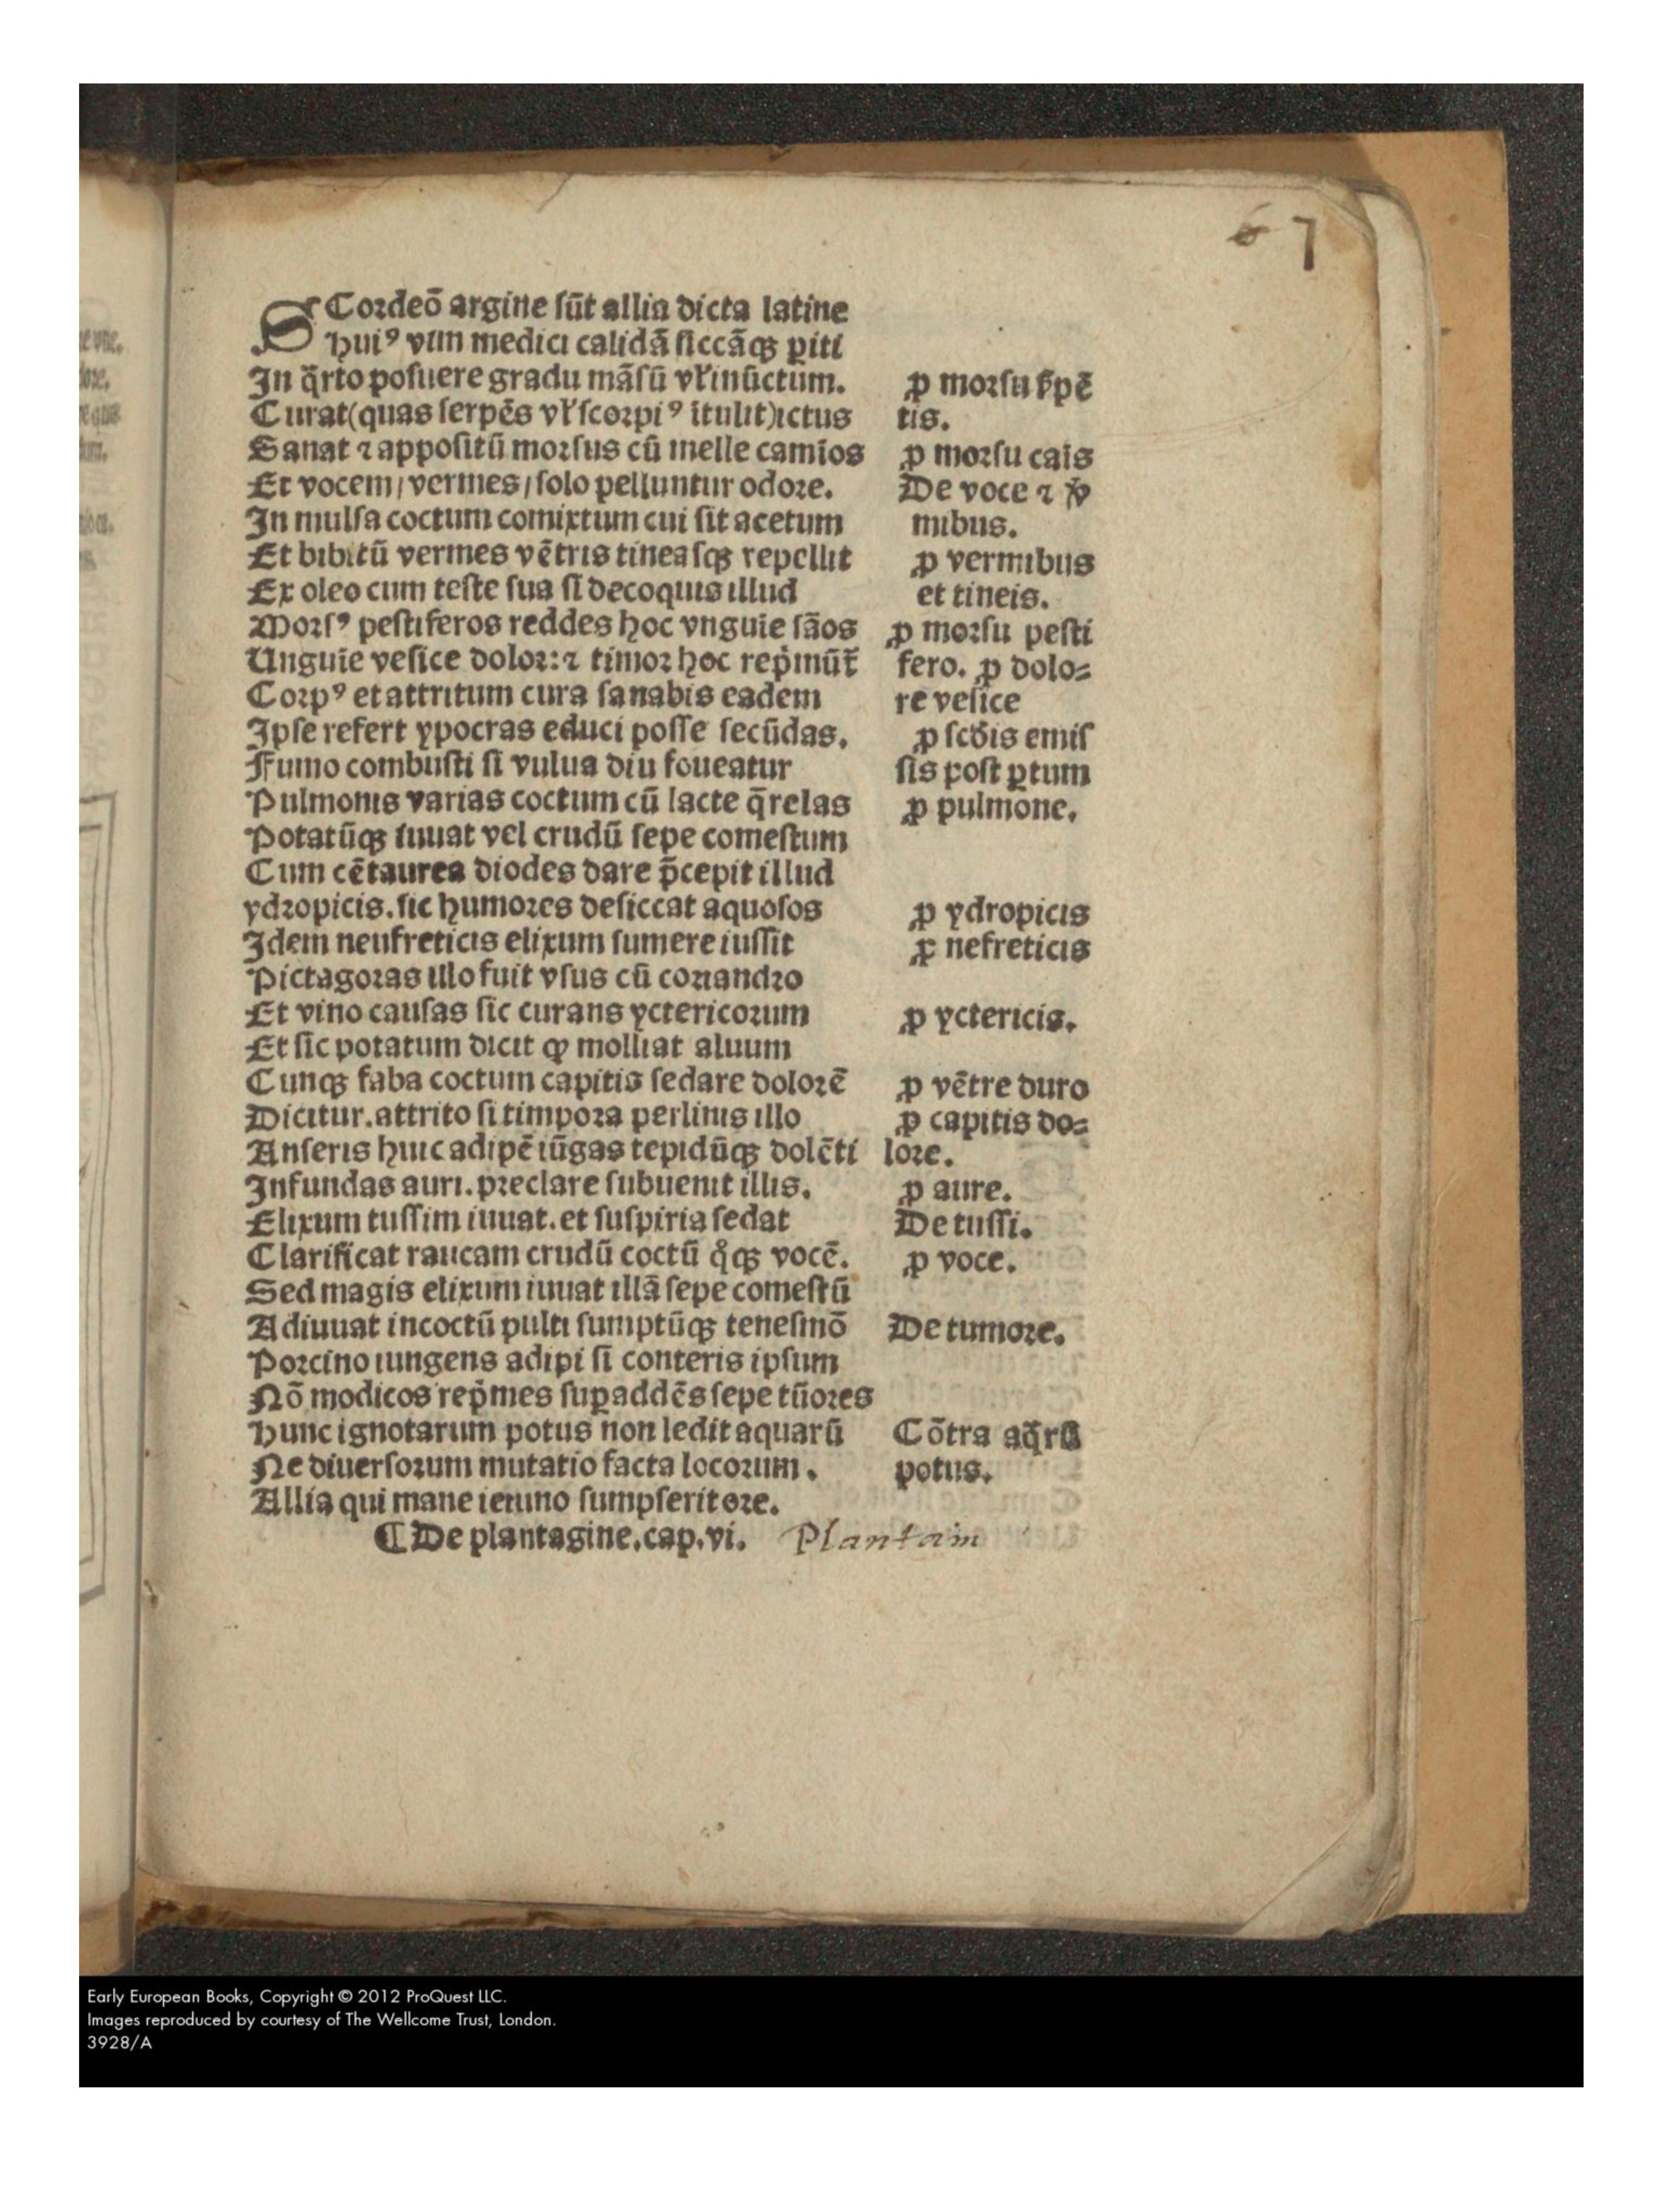 6 7
SCordeō argine ſūt allia dicta latine
huiꝰ vim medici calidā ſiccāqꝫ ꝑiti
In q̄rto poſuere gradu māſū vł inūctum.
ꝓ morſu ẜpē
Curat(quas ſerpēs vł ſcorpiꝰ ītulit)ictus
tis.
Sanat ⁊ appoſitū morſus cū melle camīos
ꝓ morſu caīs
Et vocem/vermes/ſolo pelluntur odore.
De voce ⁊
In mulſa coctum comixtum cui ſit acetum
mibus.
Et bibitū vermes vētris tineaſqꝫ repellit
ꝓ vermibus
Ex oleo cum teſte ſua ſi decoquis illud
et tineis.
Morſꝰ peſtiferos reddes hoc vnguīe ſāos
ꝓ morſu peſti
Unguīe veſice dolor:⁊ timor hoc rep̄mūt᷑
fero. ꝓ dolo⸗
Corpꝰ et attritum cura ſanabis eadem
re veſice
Ipſe refert ypocras educi poſſe ſecūdas.
ꝓ ſcd̄is emiſ
Fumo combuſti ſi vulua diu foueatur
ſis poſt ꝑtum
Pulmonis varias coctum cū lacte q̄relas
ꝓ pulmone.
Potatūqꝫ iuuat vel crudū ſepe comeſtum
Cum cētaurea diodes dare p̄cepit illud
ydropicis.ſic humores deſiccat aquoſos
ꝓ ydropicis
Idem neufreticis elixum ſumere iuſſit
ꝓ nefreticis
Pictagoras illo fuit vſus cū coriandro
Et vino cauſas ſic curans yctericorum
ꝓ yctericis.
Et ſic potatum dicit ꝙ molliat aluum
Cunqꝫ faba coctum capitis ſedare dolorē
ꝓ vētre duro
Dicitur.attrito ſi timpora perlinis illo
ꝓ capitis do⸗
Anſeris huic adipē iūgas tepidūqꝫ dolēti
lore.
Infundas auri.preclare ſubuenit illis.
ꝓ aure.
Elixum tuſſim iuuat.et ſuſpiria ſedat
De tuſſi.
Clarificat raucam crudū coctū qͦqꝫ vocē.
ꝓ voce.
Sed magis elixum iuuat illā ſepe comeſtū
Adiuuat incoctū pulti ſumptūqꝫ teneſmō
De tumore.
Porcino iungens adipi ſi conteris ipſum
Nō modicos rep̄mes ſuꝑaddēs ſepe tūores
Hunc ignotarum potus non ledit aquarū
Cōtra aq̄rū
Ne diuerſorum mutatio facta locorum.
potus.
Allia qui mane ieiuno ſumpſerit ore.
¶ De plantagine.cap.vi. Plantain
Early European Books, Copyright © 2012 ProQuest LLC.
Images reproduced by courtesy of The Wellcome Trust, London.
3928/A